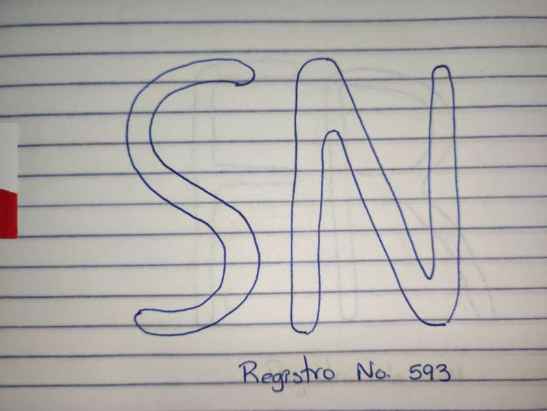 SN
Registro No. 593